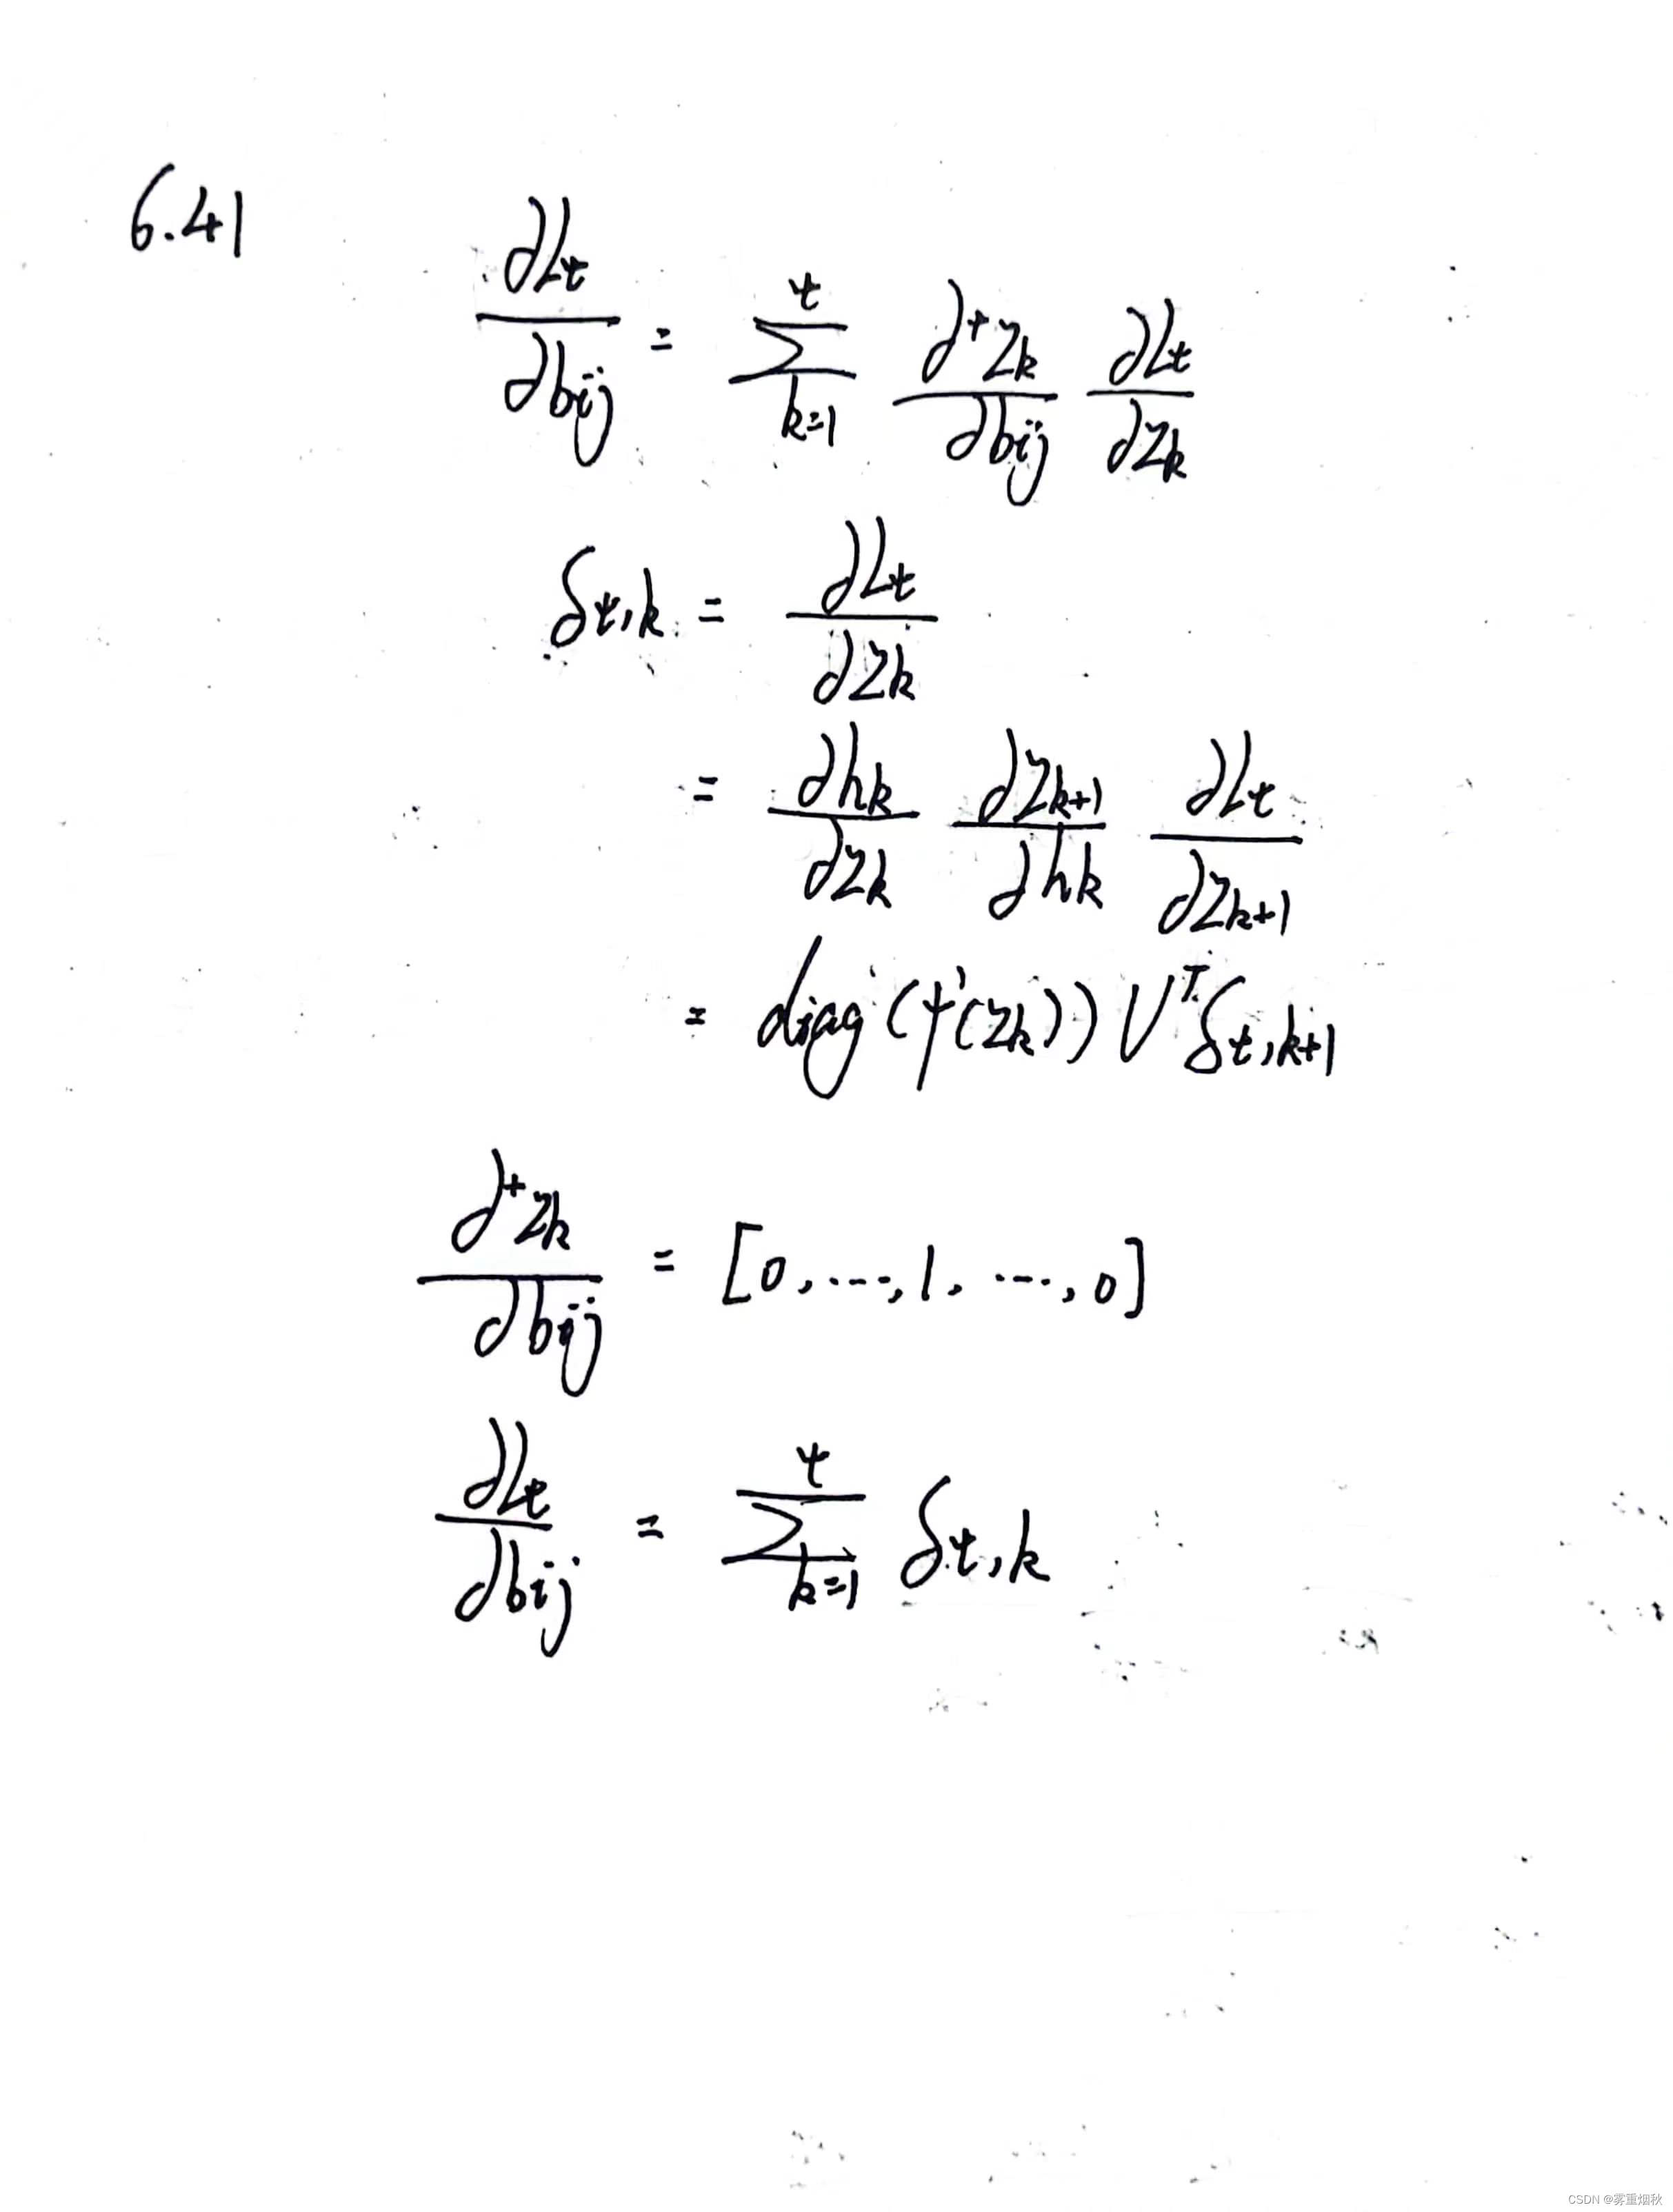 6.41
∂Lt/∂bij = Σ_{k=1}^{t} ∂⁺Zk/∂bij ∂Lt/∂Zk
δt,k = ∂Lt/∂Zk
= ∂hk/∂Zk ∂Zk+1/∂hk ∂Lt/∂Zk+1
= diag(f'(Zk)) Uᵀδt,k+1
∂⁺Zk/∂bij = [0, ..., 1, ..., 0]
∂Lt/∂bij = Σ_{k=1}^{t} δt,k
CSDN @雾重烟秋